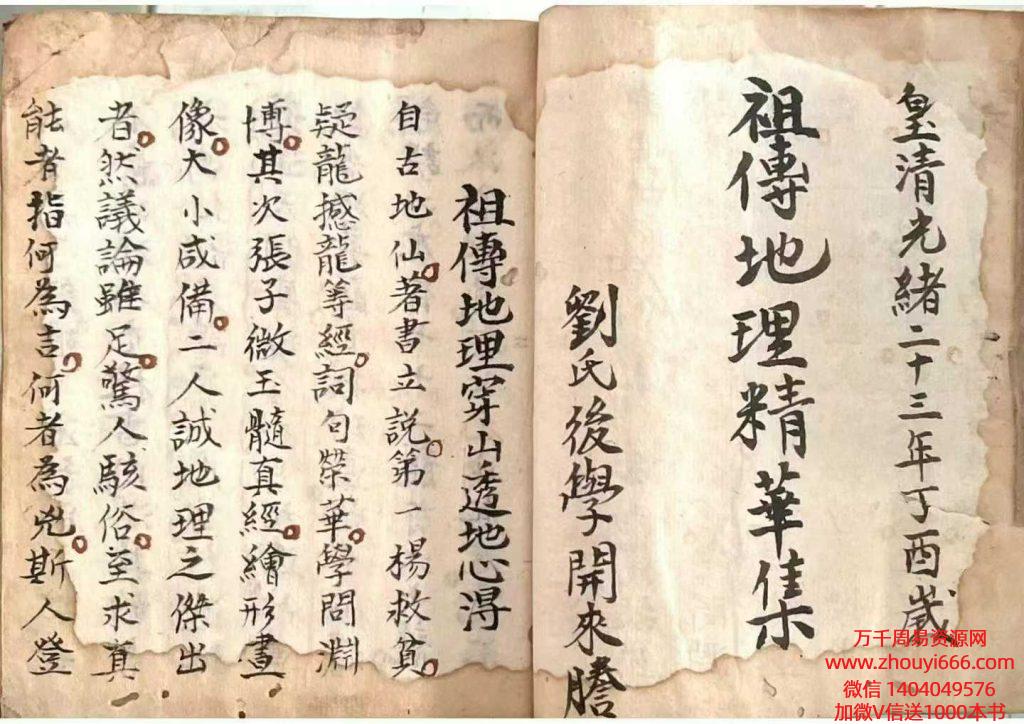 皇清光緒二十三年丁酉歲
祖傳地理精華集
劉氏後學開來謄
祖傳地理穿山透地心淂
自古地仙著書立說第一楊救貧
疑龍撼龍等經詞句榮華學問淵
博其次張子微玉髓真經繪形畫
像大小咸備二人誠地理之傑出
者然議論雖足驚人駭俗至求真
能者指何為吉何者為兇斯人登
万千周易资源网
www.zhouyi666.com
微信 1404049576
加微V信送1000本书